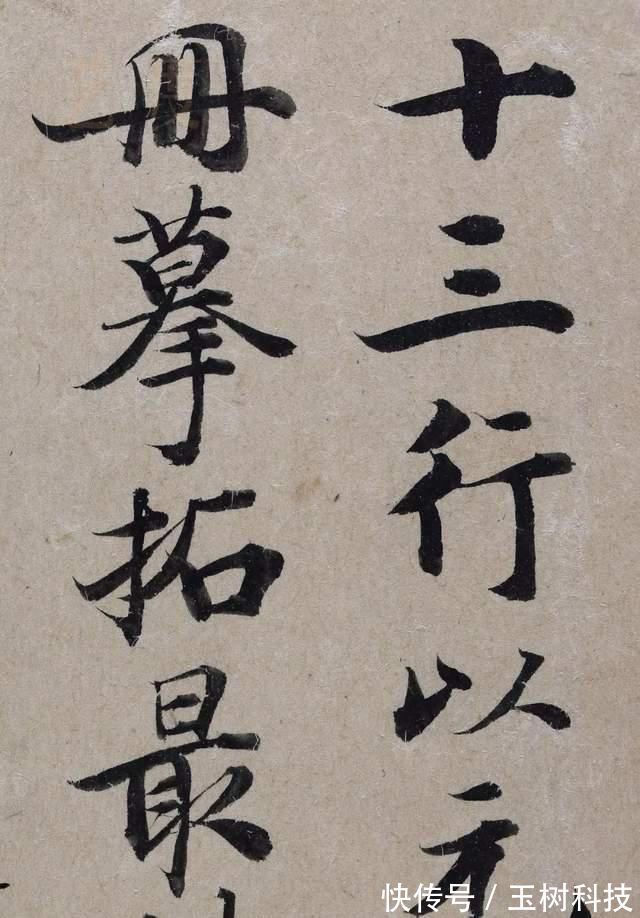 十三行以
冊摹拓最
快传号／玉树科技